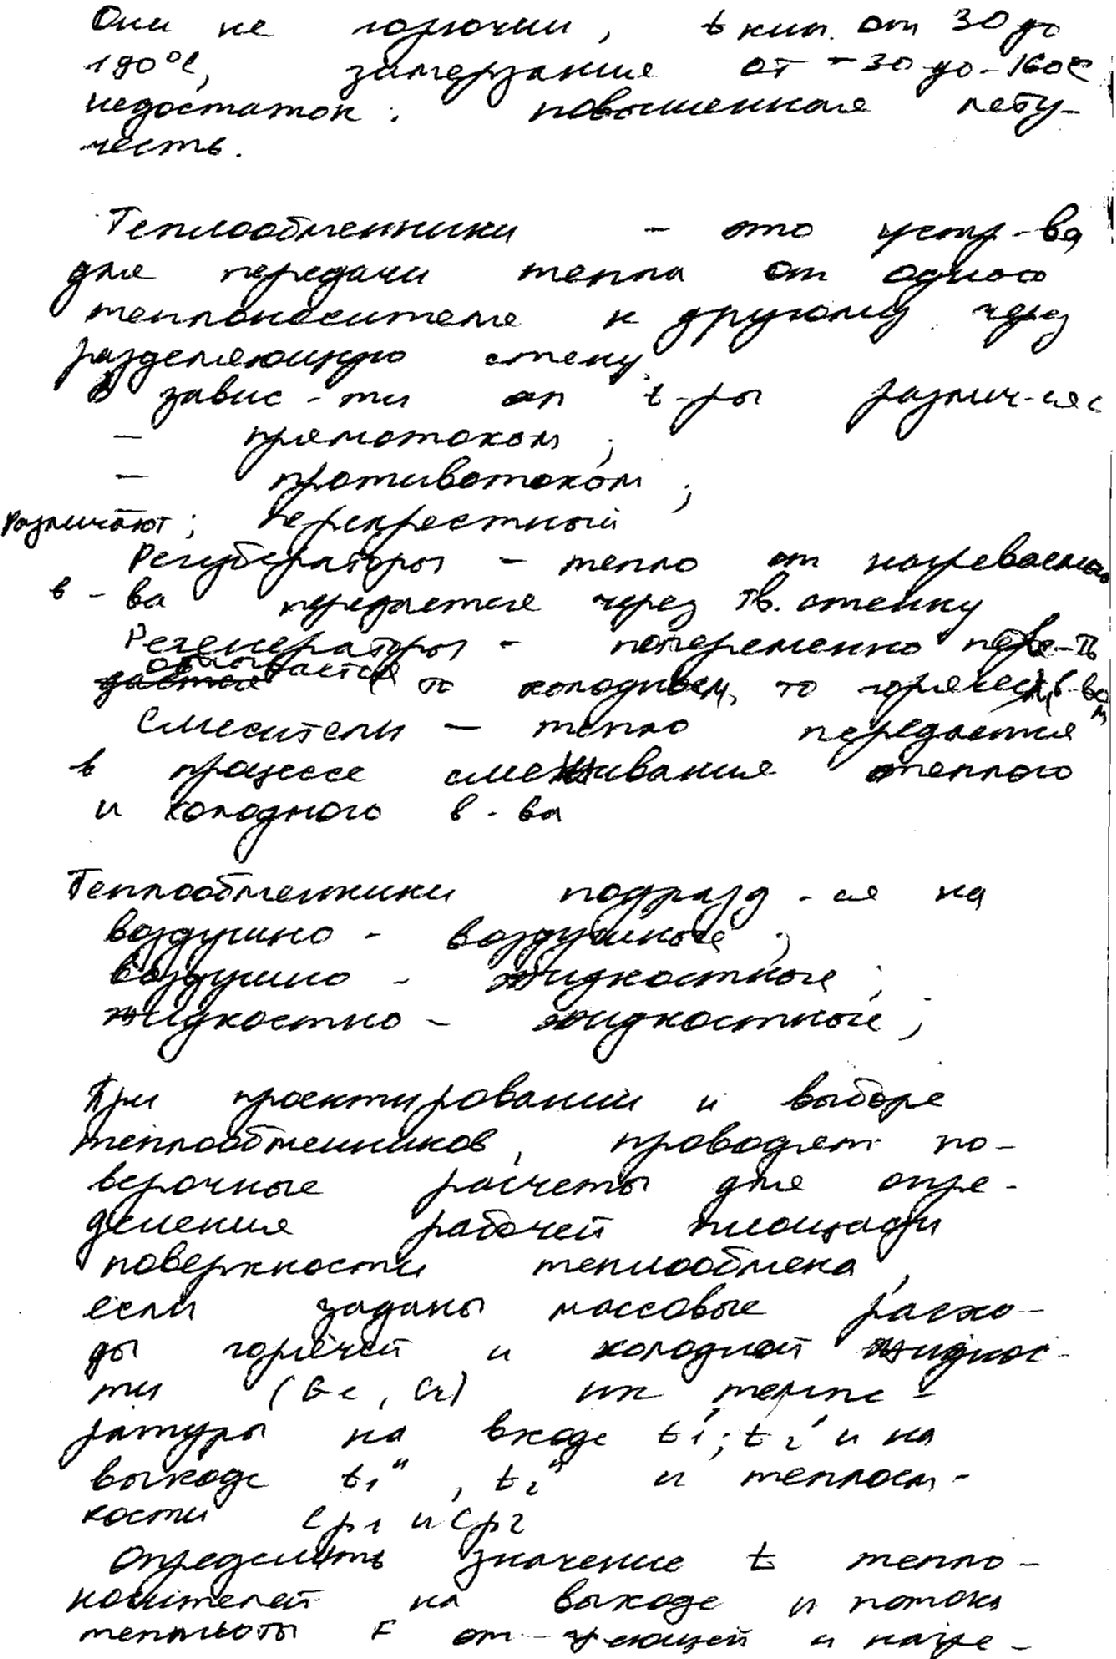 Они не горючи, t кип. от 30 до
190°С, замерзание от -30 до -160С
недостаток: повышенная лету-
честь.
Теплообменники - это устр-ва
для передачи тепла от одного
теплоносителя к другому через
разделяющую стену.
В завис-ти от t-ры различ-ся
- прямотоком;
- противотоком;
Различают; перекрестный
Рекуператоры - тепло от нагреваемого
в-ва передается через тв. стенку
Регенераторы - попеременно
омывается то холодным, то горячем в-вом
Смесители - тепло передается
в процессе смешивания теплого
и холодного в-ва
Теплообменники подразд-ся на
воздушно - воздушные;
воздушно - жидкостные;
жидкостно - жидкостные;
При проектировании и выборе
теплообменников, проводят по-
верочные расчеты для опре-
деления рабочей площади
поверхности теплообмена,
если заданы массовые расхо-
ды горячей и холодной жидкос-
ти (Gc, Gг) их темпе-
ратуры на входе t1'; t2' и на
выходе t1", t2" и теплоем-
кости Cp1 и Cp2
Определить значение t тепло-
носителей на выходе и потоки
теплоты F и нагре-